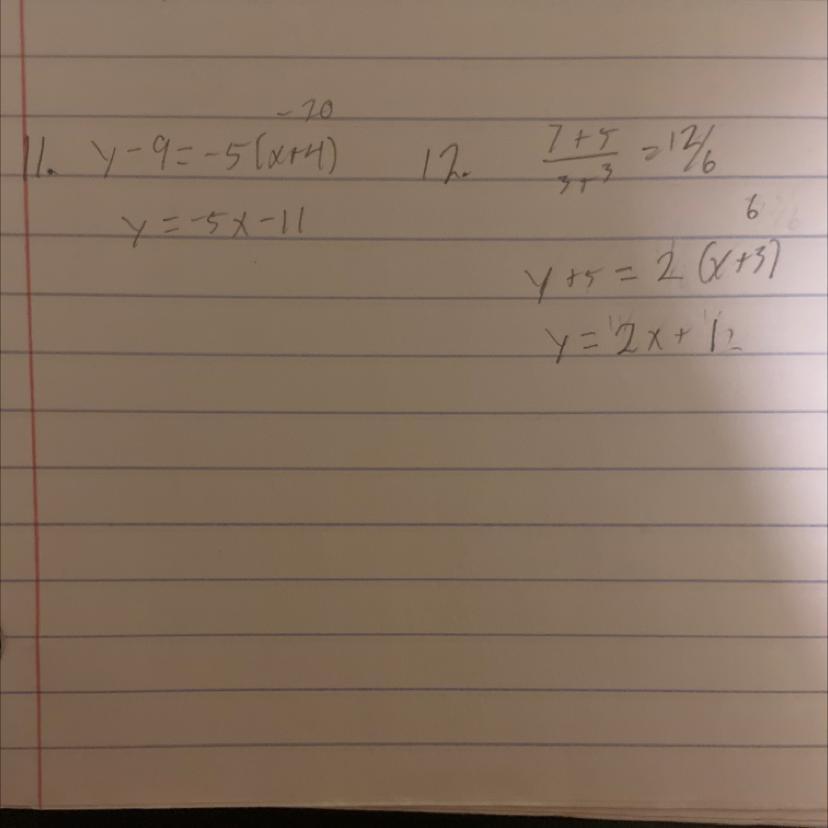 -20
11. y-9=-5(x+4)
y=-5x-11
12. 7+5/3+3 =12/6
6
y+5=2(x+3)
y=2x+12